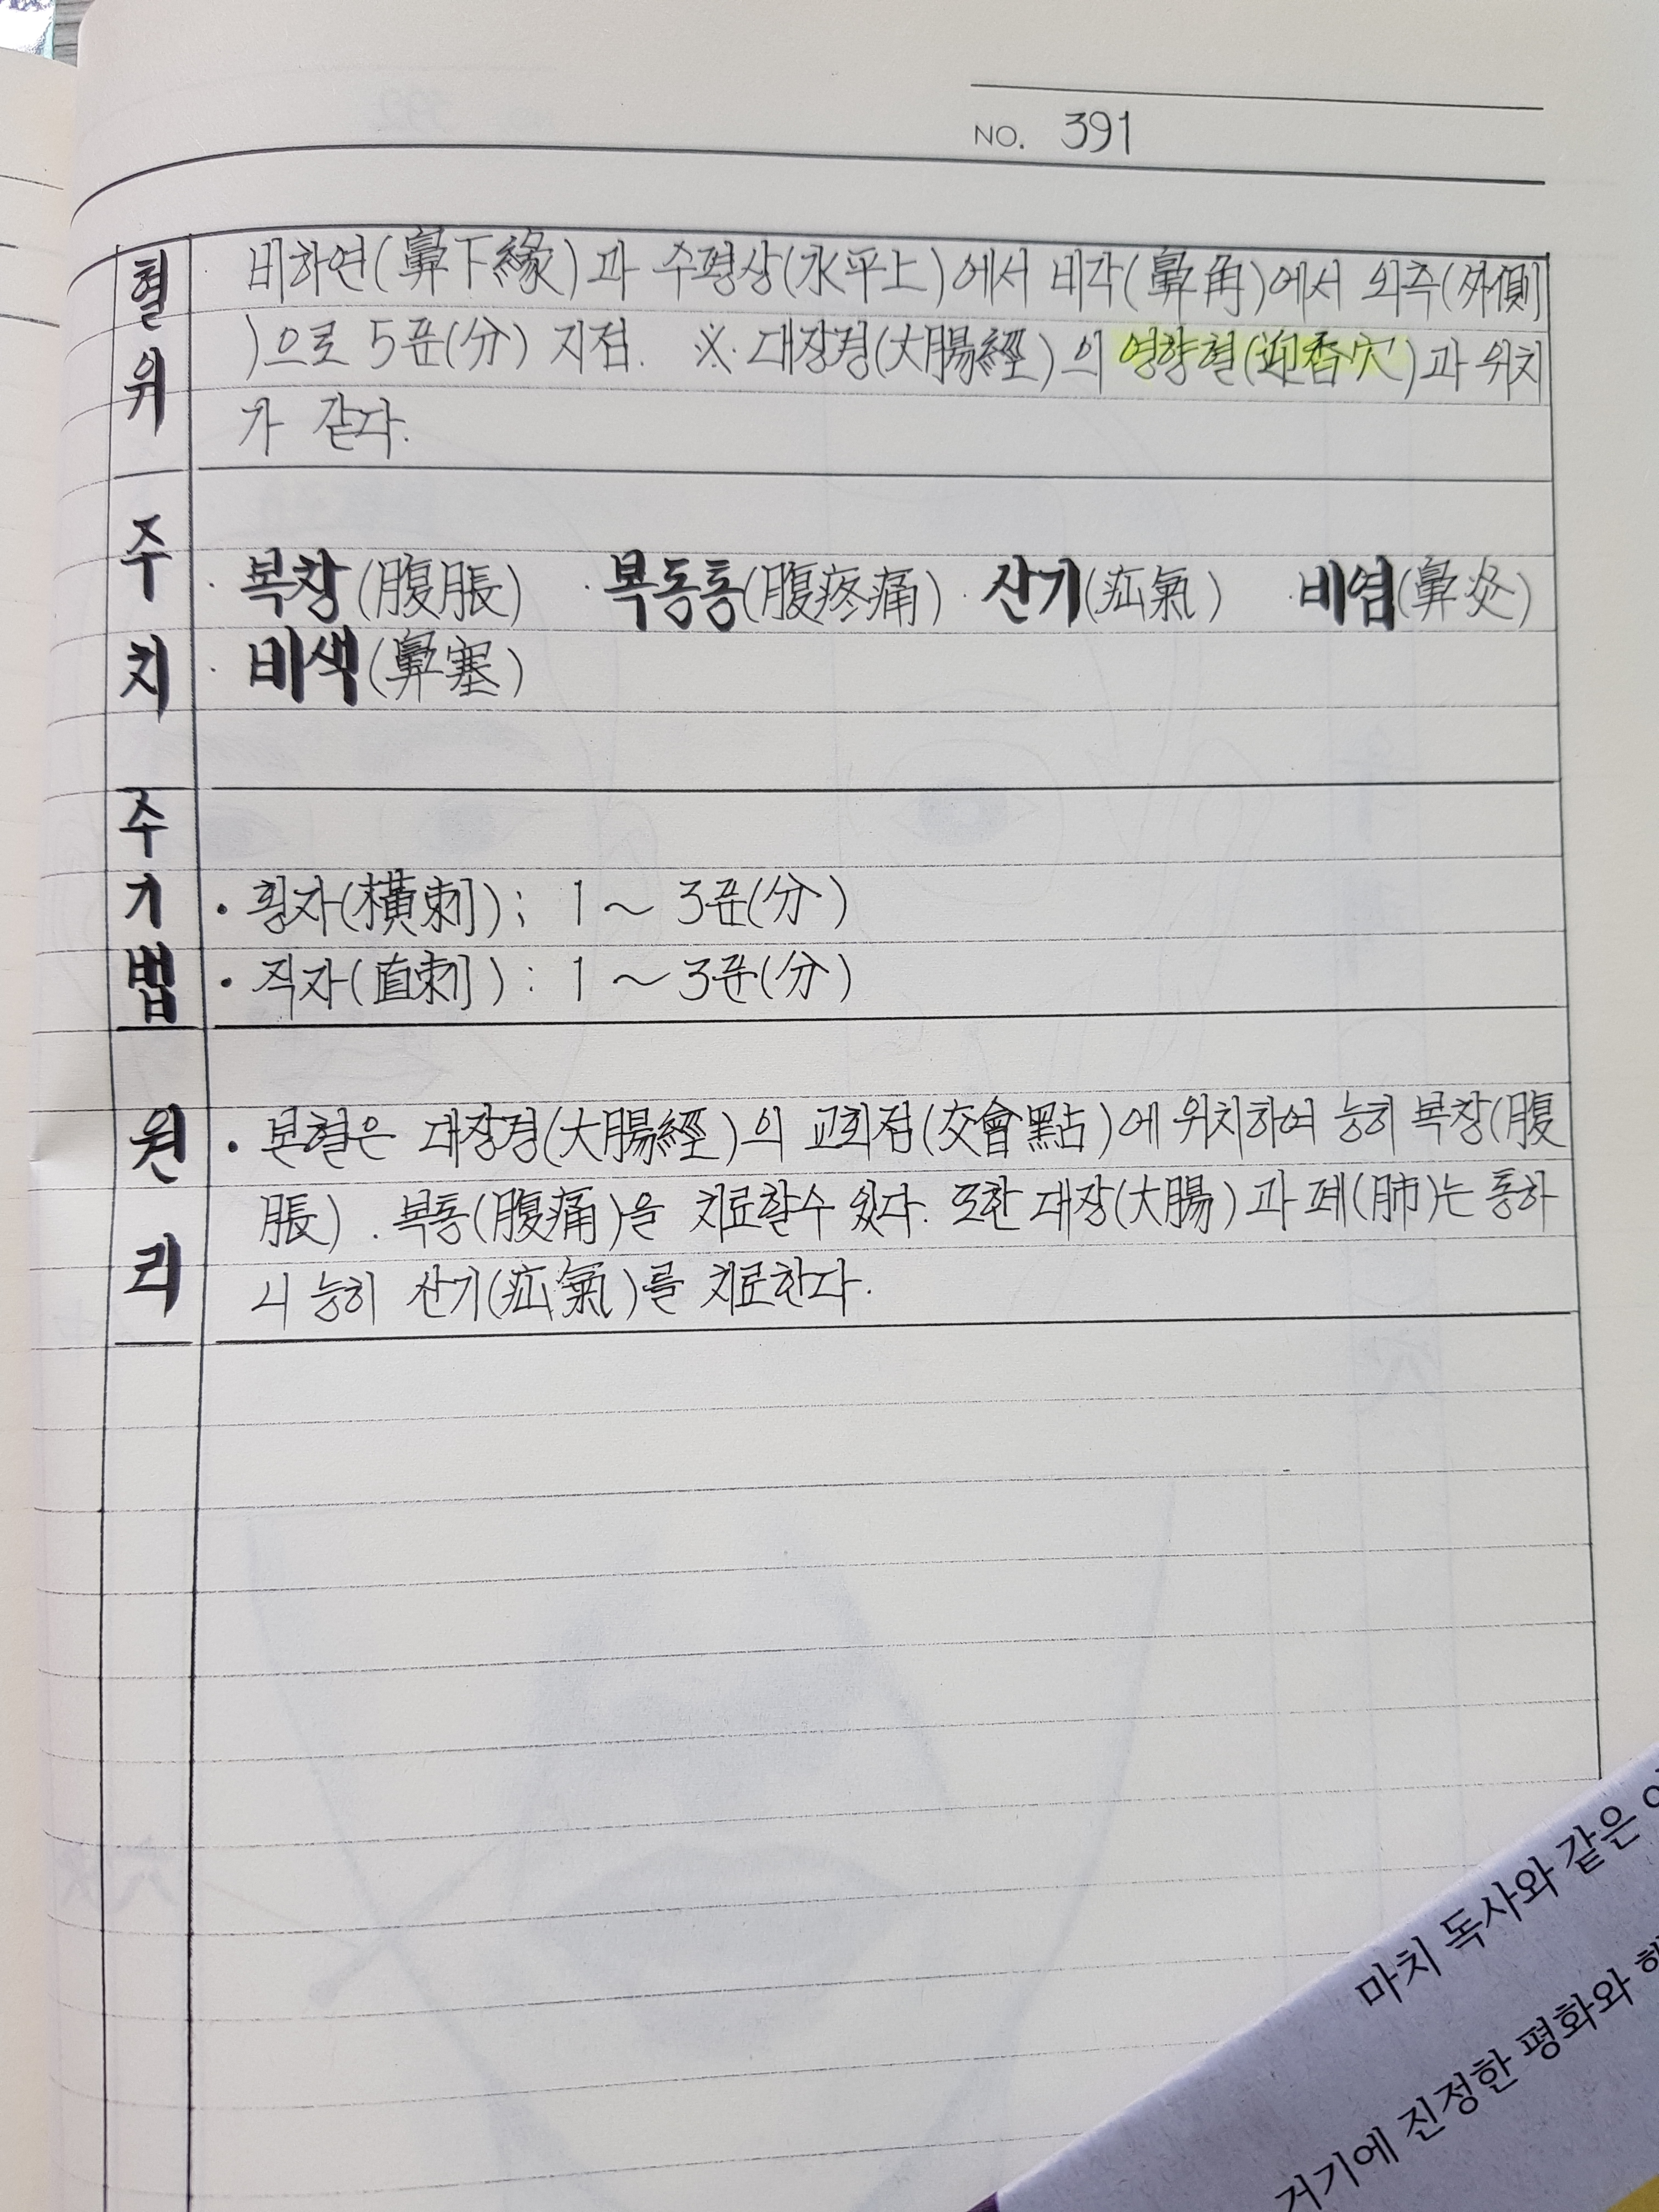 NO. 391
혈위
비하연(鼻下緣)과 수평상(水平上)에서 비각(鼻角)에서 외측(外側
)으로 5푼(分) 지점. ※. 대장경(大腸經)의 영향혈(迎香穴)과 위치
가 같다.
주치
· 복창(腹脹) · 복동통(腹疼痛) · 산기(疝氣) · 비염(鼻炎)
· 비색(鼻塞)
주기법
• 횡자(橫刺); 1 ~ 3푼(分)
• 직자(直刺): 1 ~ 3푼(分)
원리
• 본혈은 대장경(大腸經)의 교회점(交會點)에 위치하여 능히 복창(腹
脹). 복통(腹痛)을 치료할수 있다. 또한 대장(大腸)과 폐(肺)는 통하
니 능히 산기(疝氣)를 치료한다.
마치 독사와 같은
거기에 진정한 평화와